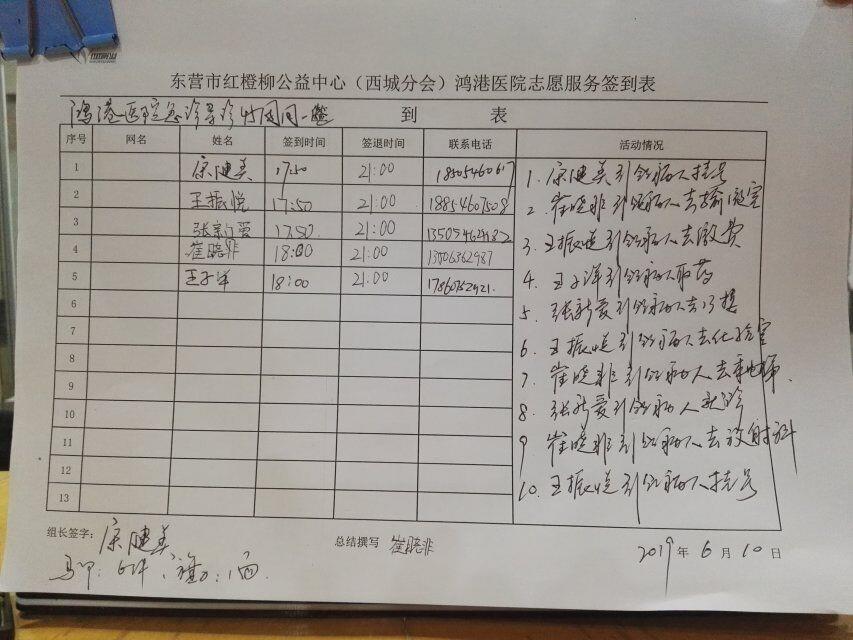 东营市红橙柳公益中心（西城分会）鸿港医院志愿服务签到表
鸿港医院急诊导诊 签 到 表
序号 网名 姓名 签到时间 签退时间 联系电话 活动情况
1 宗健美 17:50 21:00
2 王振悦 17:50 21:00 18854667508
3 张新爱 17:50 21:00 13505462482
4 崔晓非 18:00 21:00 13506362987
5 王子洋 18:00 21:00 17860752921
6
7
8
9
10
11
12
13
1. 宗健美引领病人挂号
2. 崔晓非引领病人去输液室
3. 王振悦引领病人去缴费
4. 王子洋引领病人取药
5. 张新爱引领病人去
6. 王振悦引领病人去化验室
7. 崔晓非引领病人去
8. 张新爱引领病人就诊
9. 崔晓非引领病人去放射科
10. 王振悦引领病人挂号
组长签字： 宗健美 总结撰写 崔晓非 2019 年 6 月 10 日
马甲：6件、旗：1面